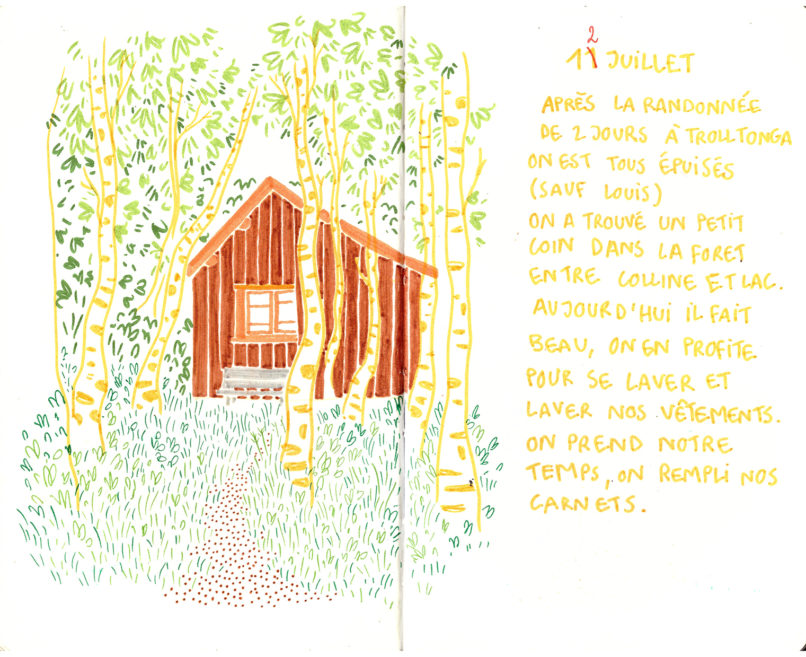 12 JUILLET
APRÈS LA RANDONNÉE
DE 2 JOURS À TROLLTONGA
ON EST TOUS ÉPUISÉS
(SAUF LOUIS)
ON A TROUVÉ UN PETIT
COIN DANS LA FORET
ENTRE COLLINE ET LAC.
AUJOURD'HUI IL FAIT
BEAU, ON EN PROFITE
POUR SE LAVER ET
LAVER NOS VÊTEMENTS.
ON PREND NOTRE
TEMPS, ON REMPLI NOS
CARNETS.